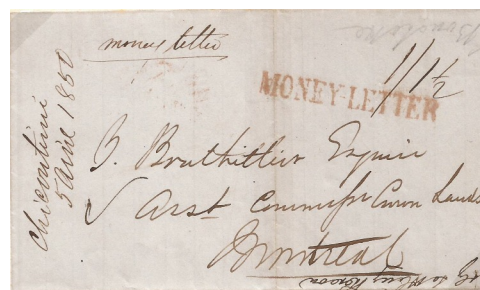 money letter
1/1½
MONEY-LETTER
Chicoutimi
5 avril 1850
B. Bouthillier Esquire
Asst Commissr Crown Lands
Montreal